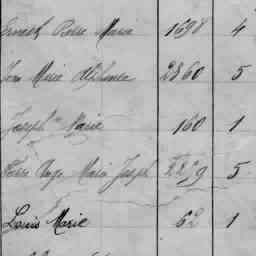 Ernest Pierre Marie 1698 4
Jean Marie Alphonse 2860 5
Joseph Marie 160 1
Pierre Ange Marie Joseph 2279 5
Louis Marie 62 1